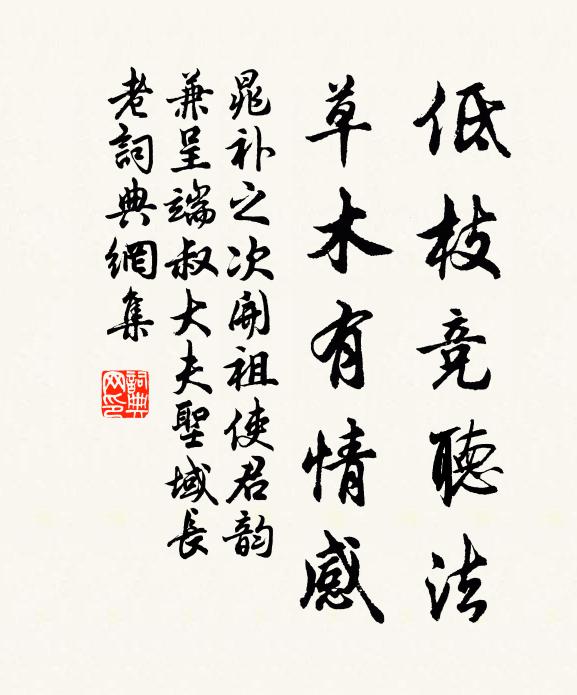 低枝竞聽法
草木有情感
晁补之次開祖使君韵
兼呈端叔大夫聖域長
老詞典網集
詞典
网印